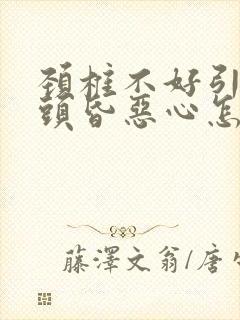 頚柱不好引
頭昏惡心怎
藤澤文翁/唐